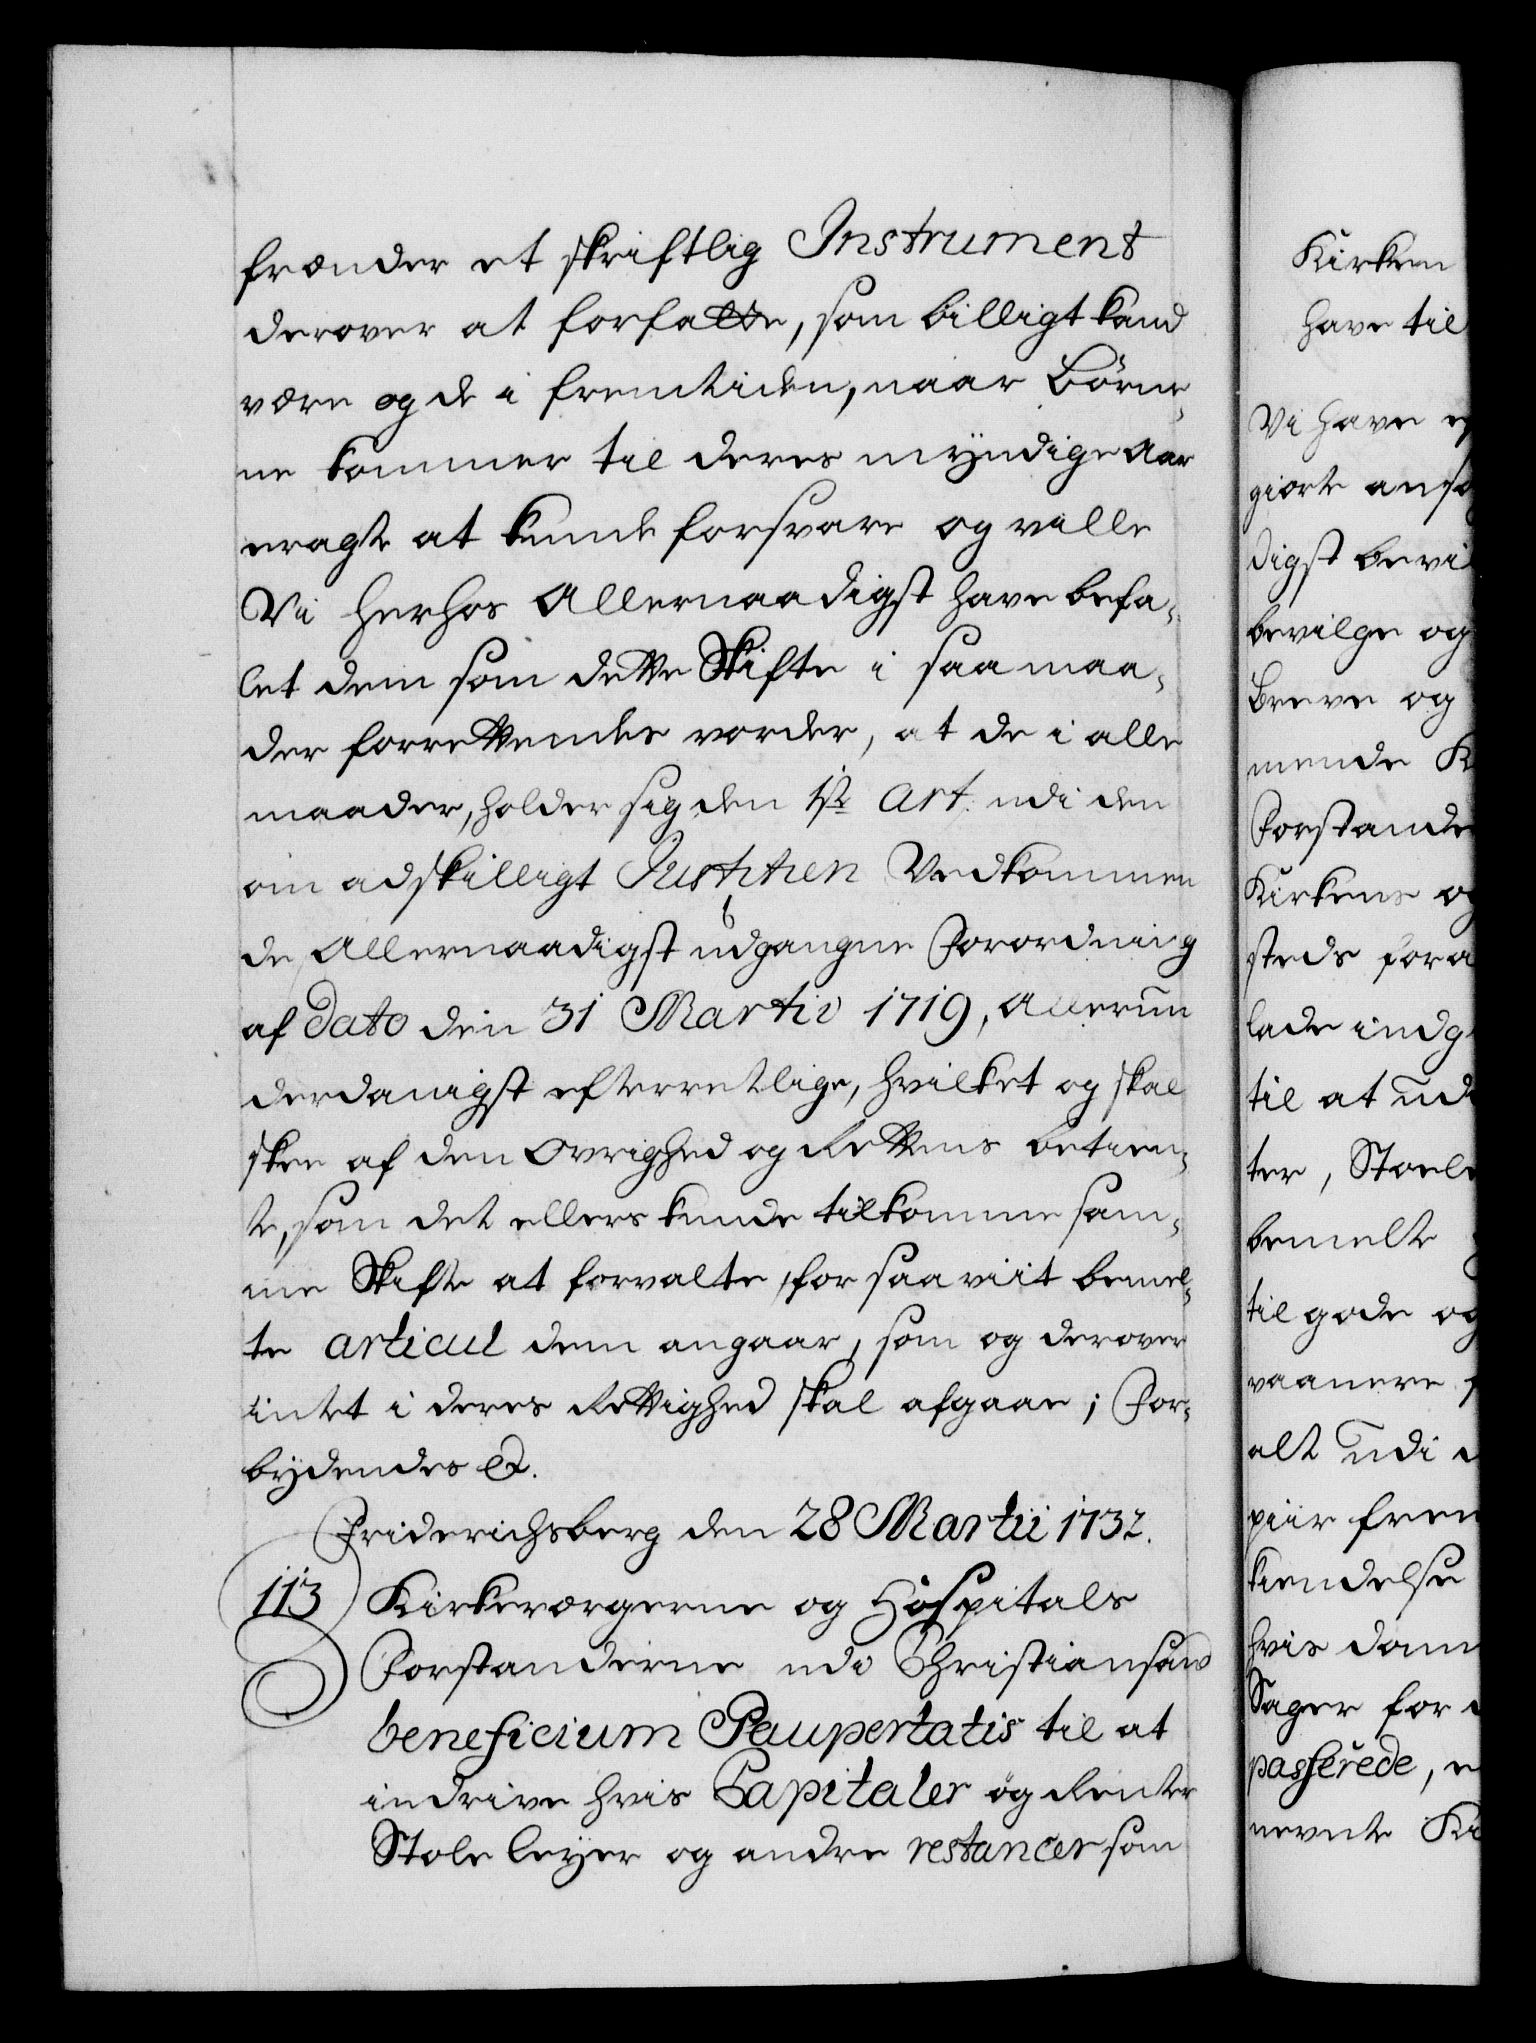 frænder et skriftlig Instrument
derover at forfatte, som billigt kand
være og de i fremtiden, naar Börne-
ne kommer til deres myndige Aar
eragte at kunde forsvare og ville
Vi herhos Allernaadigst have befa-
let dem som dette Skifte i saa maa-
der forrettendes vorder, at de i alle
maader, holder sig den 1ste Art. udi den
om adskilligt Justitien Vedkommen
de Allernaadigst udgangne Forordning
af Dato den 31 Martii 1719, Allerun
derdanigst efterretlige, hvilket og skal
skee af den Øvrighed og Rettens betien-
te, som det ellers kunde tilkomme sam-
me Skifte at forvalte, for saa viit bemel-
te articul dem angaar, som og derover
intet i deres Rettighed skal afgaae; For-
bydendes etc.
Friderichsberg den 28 Martii 1732.
113 Kirkeværgerne og Hospitals
Forstanderne udi Christiansand
beneficium Paupertatis til at
indrive hvis Capitaler og Renter
Stole leyer og andre restancer som
Kirken
have til
Vi have
giorte
digst
bevilge og
Breve og
mende
Kirkens
steds
lade
til at
ter,
bemelte
til gode og
vaanere
alt udi
piir
kiendelse
hvis
Sager for
passerede,
nevnte